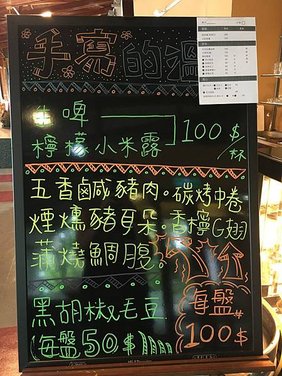 手寫的溫
生啤
檸檬小米露 100$/杯
五香鹹豬肉。碳烤中卷
煙燻豬耳朵。香檸G翅
蒲燒鯛腹。
每盤
100$
黑胡椒毛豆
(每盤50$)